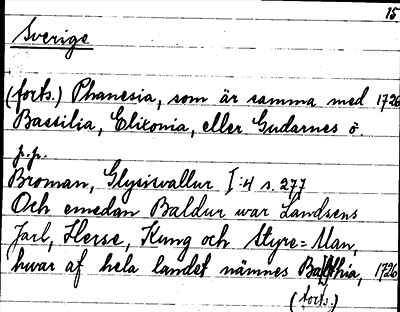 15
Sverige
(forts.) Phanesia, som är samma med 1726
Bassilia, Elixonia, eller Gudarnes ö.
p.p.
Broman, Glysisvallur I:4 s. 277
Och emedan Baldur war Landsens
Jarl, Herse, Kung och Styre=Man,
hwar af hela landet nämnes Balthia, 1726
(forts.)